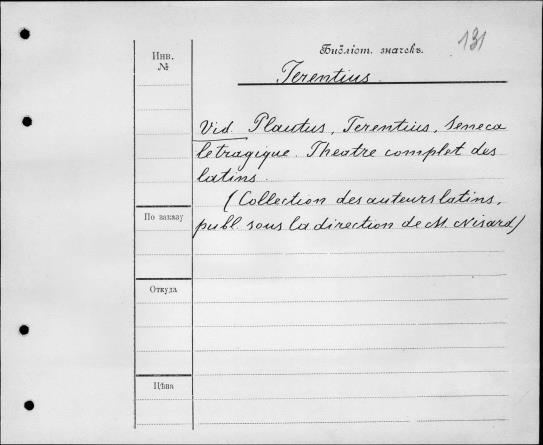 Инв. №
Библіот. значекъ.
131
Terentius.
Vid. Plautus, Terentius, Seneca
le tragique. Theatre complet des
latins.
(Collection des auteurs latins,
publ. sous la direction de M. Nisard)
По заказу
Откуда
Цѣна